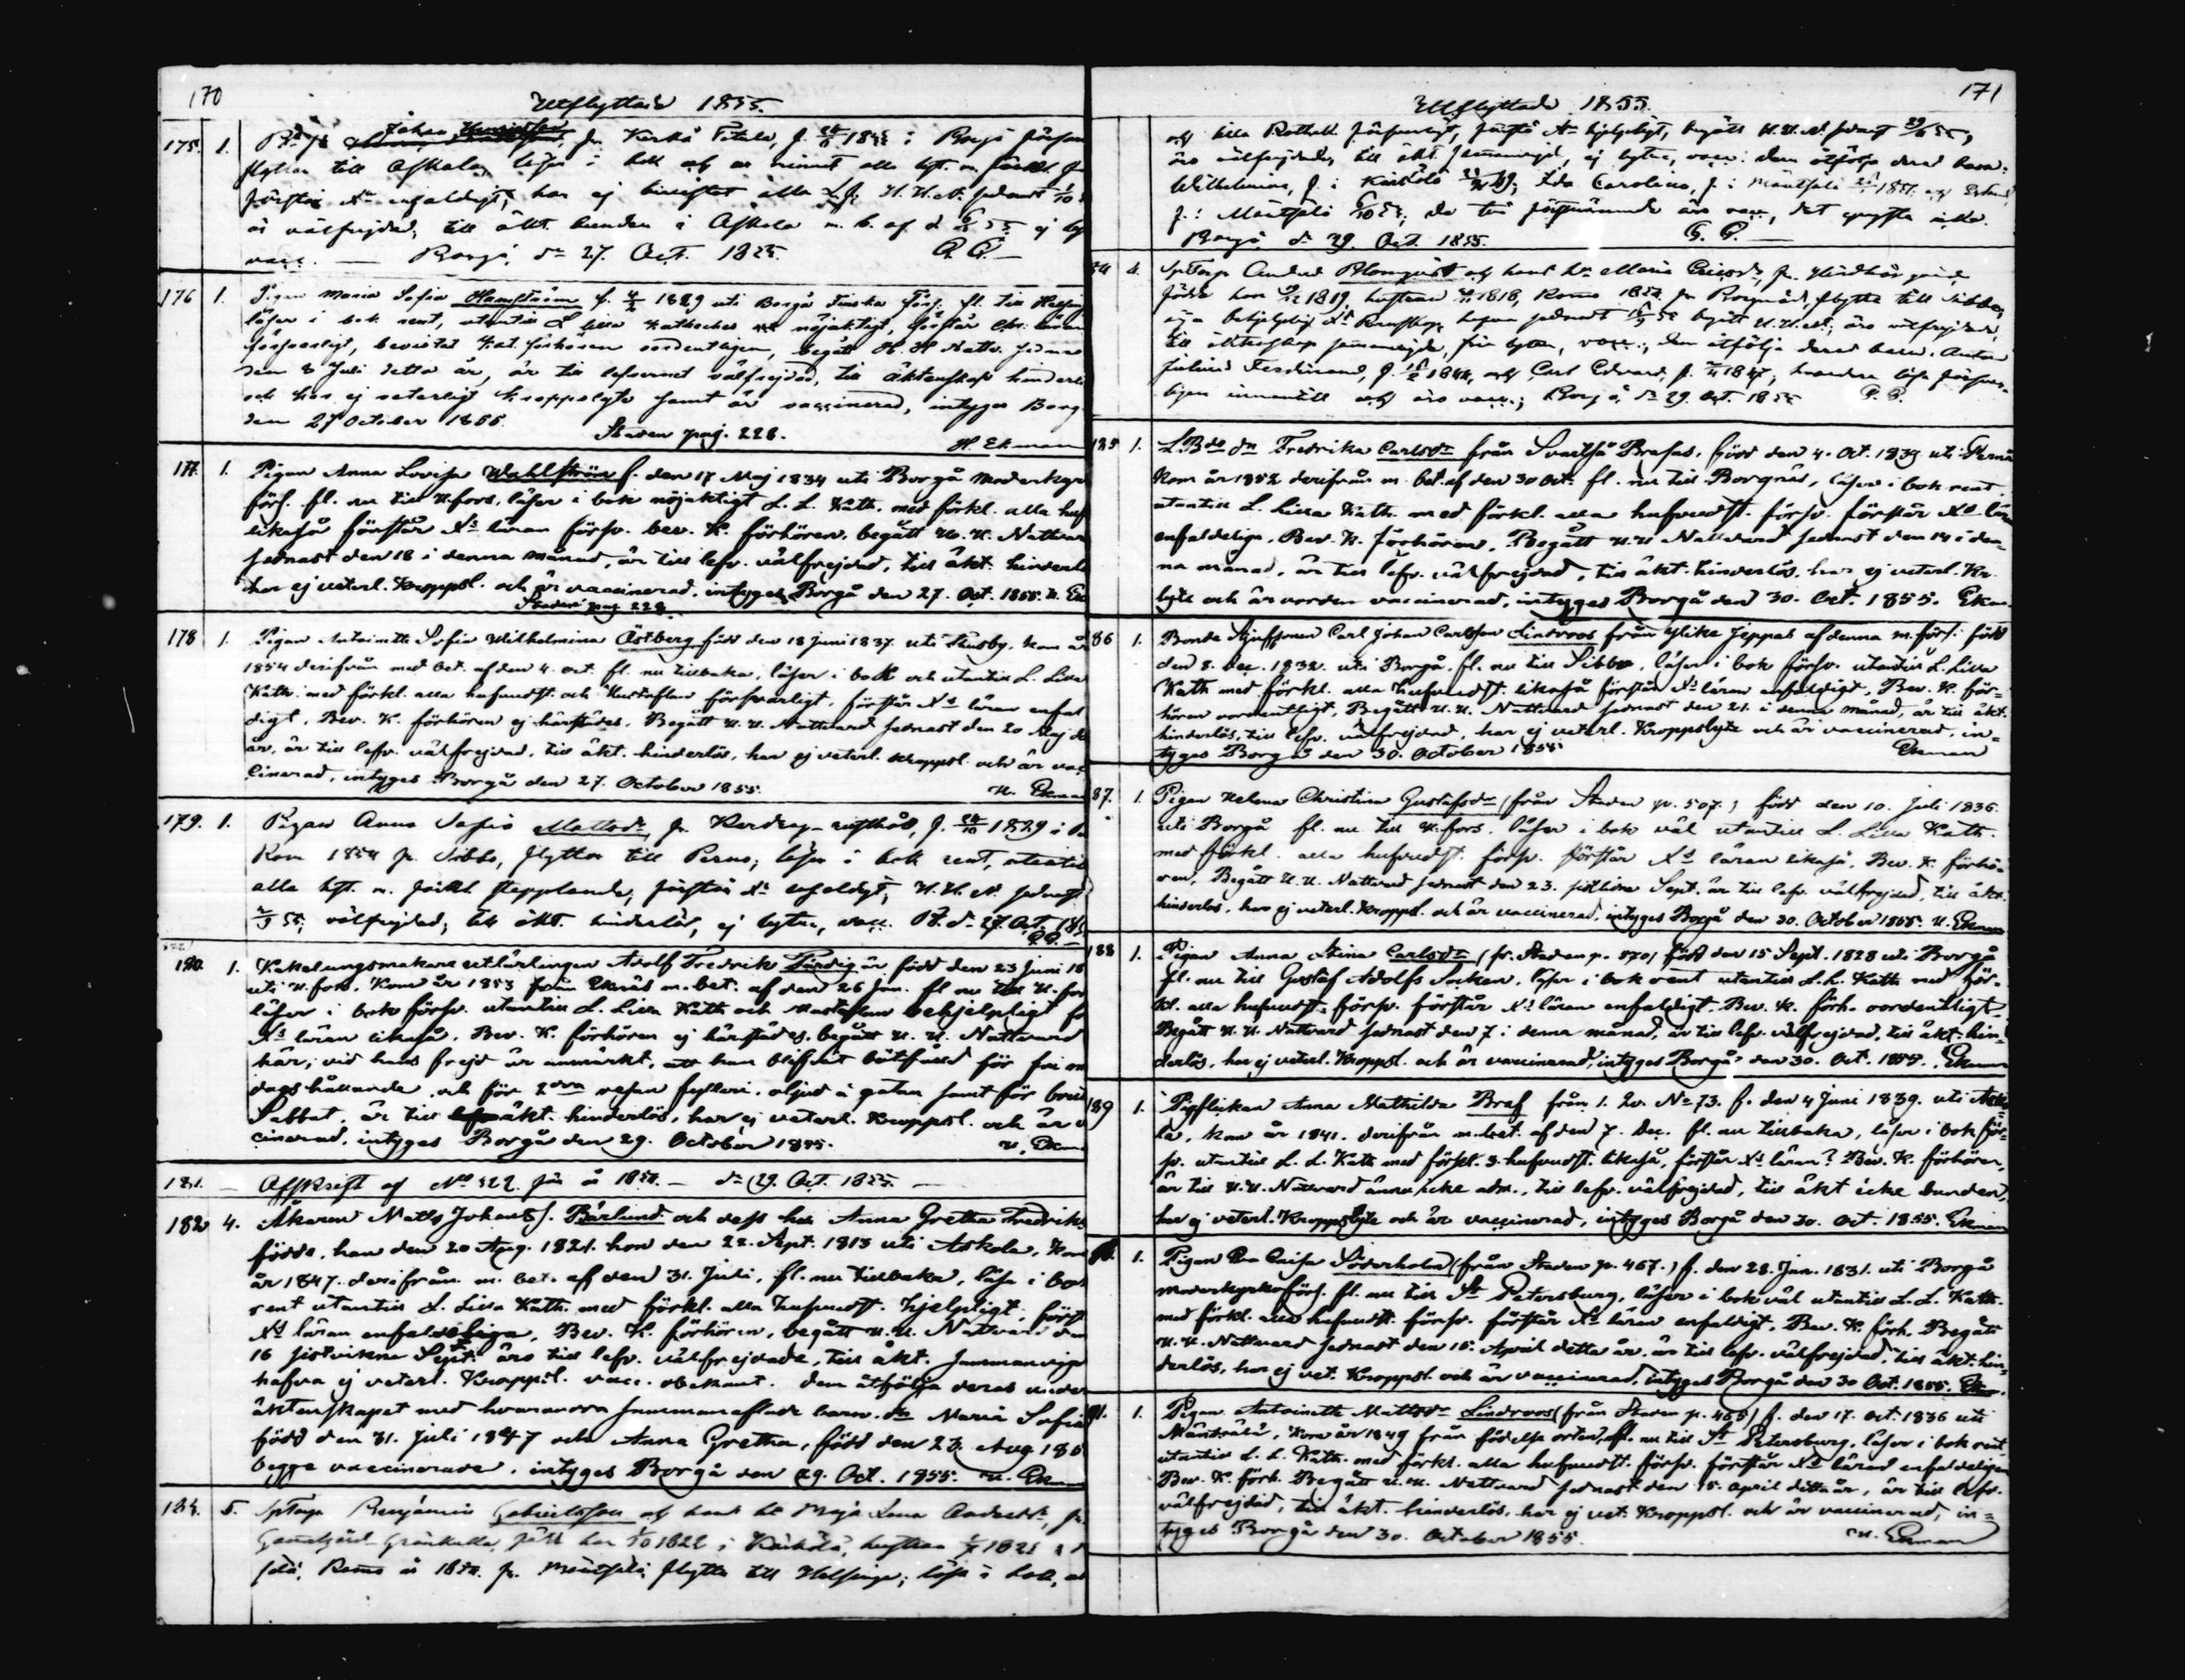 170
Utflyttade 1855.
175. 1. Johan fr. Kerko Titala, f. 1835 i Borgå
flyttar till Askola, läser i bok
förstår enfaldigt, har ej H. H. N. sednast
är välfrejdad, till äkt. bunden i Askola m. b. af d.
vacc. — Borgå, dn 27. Oct. 1855.
176 1. Pigan Maria Sofia Hamström f. 1829 uti Borgå Finska Förs. fl. till
läser i bok rent, utantill L. lilla Katheches nöjaktigt, förstår Chr. läran
försvarligt, bevistat Kat. förhören ordentligen, begått H. H. Nattv.
den 8 Juli detta år, är till lefvernet välfrejdad, till äktenskap
och har ej veterligt kroppslyte samt är vaccinerad, intygar Borgå
den 27 October 1855. Staden pag. 228. H. Ekman
177. 1. Pigan Anna Lovisa Wahlström f. den 17 Maj 1834 uti Borgå moderkyrko
förs. fl. nu till H.fors, läser i bok nöjaktigt L. L. Kath. med förkl. alla
likaså förstår Xs läran försv. bev. K. förhören, begått H. H. Nattvard
sednast den 18 i denna månad, är till lefv. välfrejdad, till äkt. hinderlös
har ej veterl. Kroppsl. och är vaccinerad, intyges Borgå den 27. Oct. 1855. H. Ek
Staden pag 228.
178 1. Pigan Antoinette Sofia Wilhelmina Östberg född den 18 Juni 1837 uti Thusby, kom år
1854 derifrån med bet. af den 4. oct. fl. nu tillbaka, läser i bok och utantill L. Lilla
Kath. med förkl. alla hufvudst. och Hustaflan försvarligt, förstår Xs läran enfal
digt, Bev. K. förhören ej härstädes, Begått H. H. Nattvard sednast den 20 Maj
år, är till lefv. välfrejdad, till äkt. hinderlös, har ej veterl. kroppsl. och är vac
cinerad, intyges Borgå den 27. October 1855. H. Ekman
179. 1. Pigan Anna Sofia Mattsdr fr. f. 1829 i
kom 1854 fr. Sibbo, flyttar till Perno; läser i bok rent, utantill
alla hft. m. förkl. förstår enfaldigt, H. H. N. sednast
välfrejdad; till äkt. hinderlös, ej lyten, vacc. dn 27. Oct.
180. 1. Kakelungsmakare utlärlingen Adolf Fredrik Färdig är född den 23 Juni
uti H.fors, Kom år 1853 från Ekenäs m. bet. af den 26 Jan. fl. nu till H.fors
läser i bok försv. utantill L. Lilla Kath och Hustaflan behjelpligt
Xs läran likaså, Bev. K. förhören ej härstädes, begått H. H. Nattvard
här; vid hans frejd är anmärkt, att han blifvit bötfälld för
dags hållande, och för 2dra resan fylleri, oljud å gatan samt för
Sabbat, är till äkt. hinderlös, har ej veterl. Kroppsl. och är
cinerad, intyges Borgå den 29. October 1855. H. Ekman
181. — Afskrift af No 322 från år 1854. — dn 29. Oct. 1855 —
182 4. Åkaren Matts Johanss. Bärlund och dess hu Anna Gretha Fredriks
födde, han den 20 Aug. 1821. hon den 22. Sept. 1813 uti Askola, kom
år 1847. derifrån m. bet. af den 31. Juli, fl. nu tillbaka, läsa i bok
rent utantill L. Lilla Kath. med förkl. alla hufvudst. hjelpligt, förs
Xs läran enfaldeliga, Bev. K. förhören, begått H. H. Nattvard den
16 sistvikne Sept. äro till lefv. välfrejdade, till äkt. sammanvigde
hafva ej veterl. Kroppsl. vacc. obekant. dem åtfölja deras under
äktenskapet med hvarandra sammanaflade barn. Maria Sofia
född den 31. Juli 1847 och Anna Gretha, född den 23. Aug 185
begge vaccinerade, intyges Borgå den 29. Oct. 1855. H. Ekman
5. Benjamin Gabrielsson och hans hu Maja Lena Andersdr, fr.
född han 1822 i hustrun 1821
komne år 1854 fr. Mäntsälä, flytta till Helsinge; läsa i bok,
171
Utflyttade 1855.
försvarligt, förstå hjelpligt, begått H. H. N. sednast
äro välfrejdade, till äkt. sammanvigde, ej lyten, vacc.: dem åtfölja deras barn:
Wilhelmina, f. i Ida Carolina, f. i Mäntsälä 1851. och
f. i Mäntsälä de två förstnämnde äro vacc., det yngsta icke.
Borgå dn 29. Oct. 1855.
Anders Blomqvist och hans hu Maria Ericsdr, fr.
födde han 1819, hustrun 1818, komne 1852 fr. Borgnäs, flytta till Sibbo,
ega behjelplig Kunskap, hafva sednast begått H. H. N.; äro välfrejdade,
till äktenskap sammanvigde, fria lyten, vacc.; dem åtfölja deras barn. Anders
Julius Ferdinand, f. 1844, och Carl Edvard, f. 1847; hvardera läsa försvar-
ligen innantill och äro vacc.; Borgå dn 29. Oct. 1855
185 1. dn Fredrika Carlsdr från Svartså Brasas, född den 4. Oct. 1839 uti Pernå
Kom år 1852 derifrån m. bet. af den 30 Oct. fl. nu till Borgnäs, läser i bok rent
utantill L. Lilla Kath. med förkl. alla hufvudst. försv. förstår Xs läran
enfaldeliga, Bev. K. förhören, Begått H. H. Nattvard sednast den 14 i den-
na månad, är till lefv. välfrejdad, till äkt. hinderlös, har ej veterl. Kr.
lyte och är vorden vaccinerad, intyges Borgå den 30. Oct. 1855. Ekm.
86 1. Bonde Styfsonen Carl Johan Carlsson Lindroos från Ylike Jeppas af denna m. förs. född
den 8. Dec. 1832. uti Borgå, fl. nu till Sibbo, läser i bok försv. utantill L. Lilla
Kath med förkl. alla hufvudst. likaså förstår Xs läran enfaldigt, Bev. K. för-
hören ordentligt, Begått H. H. Nattvard sednast den 21. i denna månad, är till äkt.
hinderlös, till lefv. välfrejdad, har ej veterl. Kroppslyte och är vaccinerad, in-
tyges Borgå den 30. October 1855 Ekman
87. 1. Pigan Helena Christina Gustafsdr (från Staden p. 507.) född den 10. Juli 1836
uti Borgå fl. nu till H.fors, läser i bok väl utantill L. Lilla Kath.
med förkl. alla hufvudst. försv. förstår Xs läran likaså, Bev. K. förhö-
ren, Begått H. H. Nattvard sednast den 23. sistlidne Sept. är till lefv. välfrejdad, till äkt.
hinderlös, har ej veterl. Kroppsl. och är vaccinerad, intyges Borgå den 30. October 1855. H. Ekman
188 1. Pigan Anna Stina Carlsdr (fr. Staden p. 570) född den 15 Sept. 1828 uti Borgå
fl. nu till Gustaf Adolfs Socken, läser i bok rent utantill L. L. Kath med för-
kl. alla hufvudst. försv. förstår Xs läran enfaldigt, Bev. K. förh. ordentligt
Begått H. H. Nattvard sednast den 7 i denna månad, är till lefv. välfrejdad, till äkt. hin-
derlös, har ej veterl. Kroppsl. och är vaccinerad, intyges Borgå den 30. Oct. 1855. Ekman
189 1. Pigflickan Anna Mathilda Braf från 1. Qv. No 73. f. den 4 Juni 1839. uti Asko-
la, kom år 1841. derifrån m. bet. af den 7. Dec. fl. nu tillbaka, läser i bok för-
sv. utantill L. L. Kath med förkl. 3. hufvudst. likaså, förstår Xs läran? Bev. K. förhören,
är till H. H. Nattvard ännu icke adm., till lefv. välfrejdad, till äkt icke bunden,
har ej veterl. Kroppslyte och är vaccinerad, intyges Borgå den 30. Oct. 1855. Ekman
1. Pigan Eva Caisa Söderholm (från Staden p. 467.) f. den 28. Jan. 1831. uti Borgå
moderkyrko förs. fl. nu till St Petersburg, läser i bok väl utantill L. L. Kath.
med förkl. alla hufvudst. försv. förstår Xs läran enfaldigt, Bev. K. förh. Begått
H. H. Nattvard sednast den 15. April detta år, är till lefv. välfrejdad, till äkt. hin-
derlös, har ej vet. Kroppsl. och är vaccinerad, intyges Borgå den 30 Oct. 1855. Ekm.
91. 1. Pigan Antoinette Mattsdr Lindroos (från Staden p. 465) f. den 17. oct. 1836 uti
Mäntsälä, Kom år 1849 från födelse orten, fl. nu till St Petersburg, läser i bok rent
utantill L. L. Kath. med förkl. alla hufvudst. försv. förstår Xs läran enfaldeligen
Bev. K. förh. Begått H. H. Nattvard sednast den 15. april detta år, är till lefv.
välfrejdad, till äkt. hinderlös, har ej vet. Kroppsl. och är vaccinerad, in-
tyges Borgå den 30. October 1855 H. Ekman